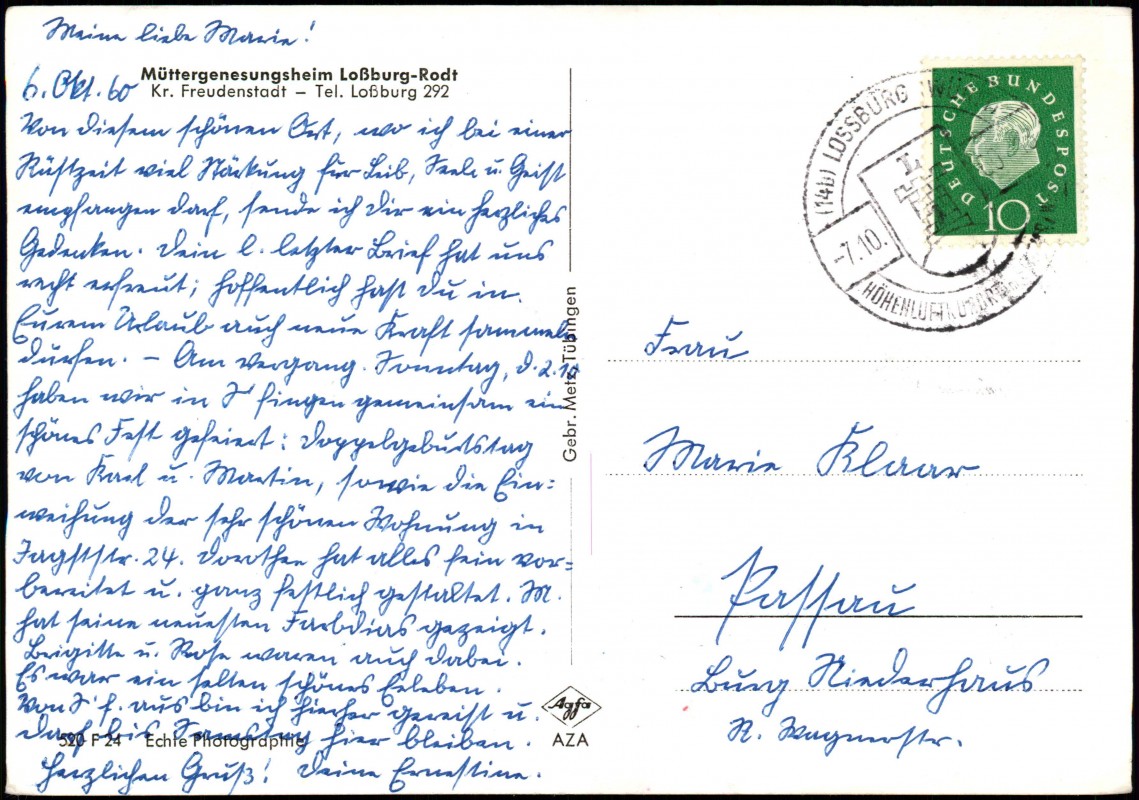 Meine liebe Marie!
Müttergenesungsheim Loßburg-Rodt
Kr. Freudenstadt – Tel. Loßburg 292
6. Okt. 60
Von diesem schönen Ort, wo ich bei einer
Rüstzeit viel Stärkung für Leib, Seele u. Geist
empfangen darf, sende ich Dir ein herzliches
Gedenken. Dein l. letzter Brief hat uns
recht erfreut; hoffentlich hast Du in
Eurem Urlaub auch neue Kraft sammeln
dürfen. – Am vergang. Sonntag, d. 2.10
haben wir in S'fingen gemeinsam ein
schönes Fest gefeiert: Doppelgeburtstag
von Karl u. Martin, sowie die Ein=
weihung der sehr schönen Wohnung in
Jagststr. 24. Dorothee hat alles fein vor=
bereitet u. ganz festlich gestaltet. M.
hat seine neuesten Farbdias gezeigt.
Brigitte u. Rose waren auch dabei.
Es war ein selten schönes Erleben.
Von S'f. aus bin ich hierher gereist u.
darf bis Samstag hier bleiben.
Herzlichen Gruß! Deine Ernestine.
520 F 24 Echte Photographie
Gebr. Metz, Tübingen
Agfa
AZA
(14b) LOSSBURG (WÜ
-7.10.
HÖHENLUFTKURORT
DEUTSCHE BUNDESPOST
10
Frau
Marie Klaar
Passau
Burg Niederhaus
R. Wagnerstr.